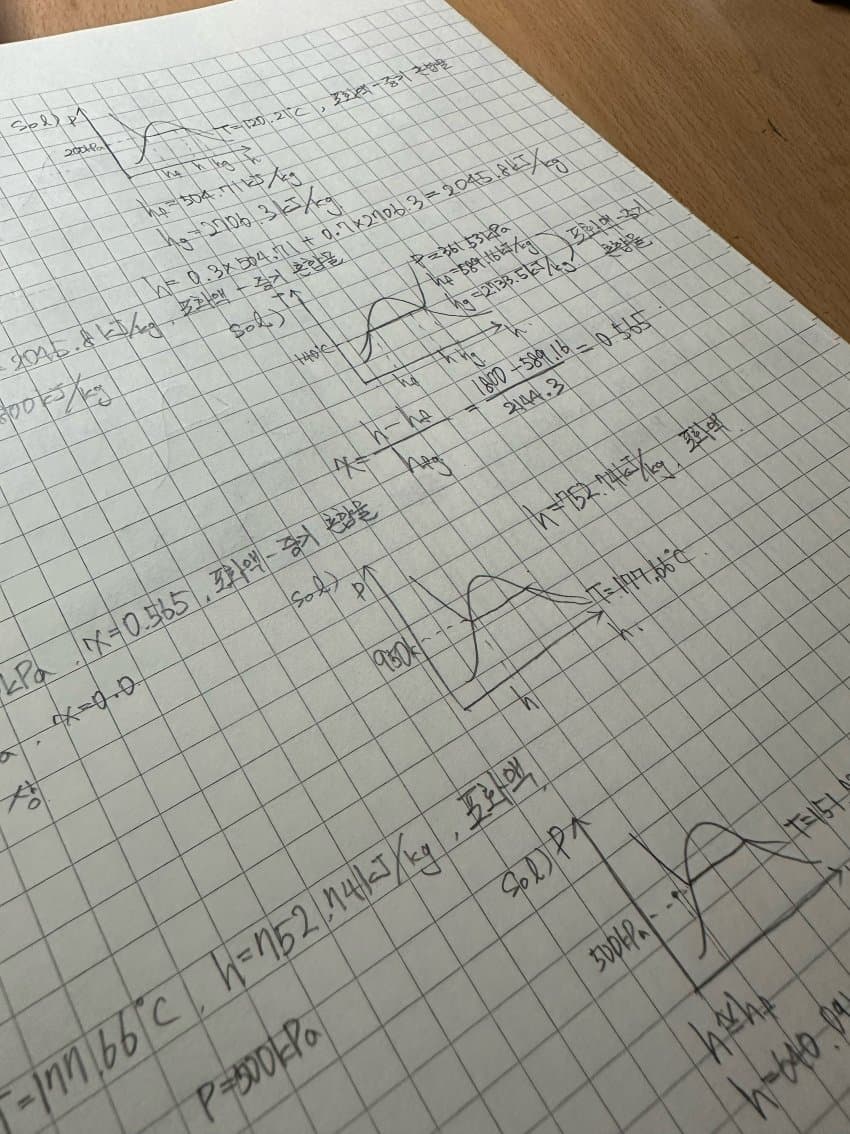 Sol) P
200kPa
T=120.21°C, 포화액-증기 혼합물
hf h hg h
hf=504.71 kJ/kg
hg=2706.3 kJ/kg
h= 0.3×504.71 + 0.7×2706.3 = 2045.8 kJ/kg
2045.8 kJ/kg, 포화액-증기 혼합물
800 kJ/kg
Sol) T
140°C
P=361.53kPa
hf=589.16 kJ/kg
hg=2733.5 kJ/kg
포화액-증기 혼합물
hf h hg h
x= h-hf / hfg = 1800-589.16 / 2144.3 = 0.565
kPa, x=0.565, 포화액-증기 혼합물
x=0.0
상
Sol) P
950k
h=752.74 kJ/kg, 포화액
T=177.66°C
h h
T=177.66°C, h=752.74 kJ/kg, 포화액
P=500kPa
Sol) P
500kPa
T=151
h≅hf
h=640.09